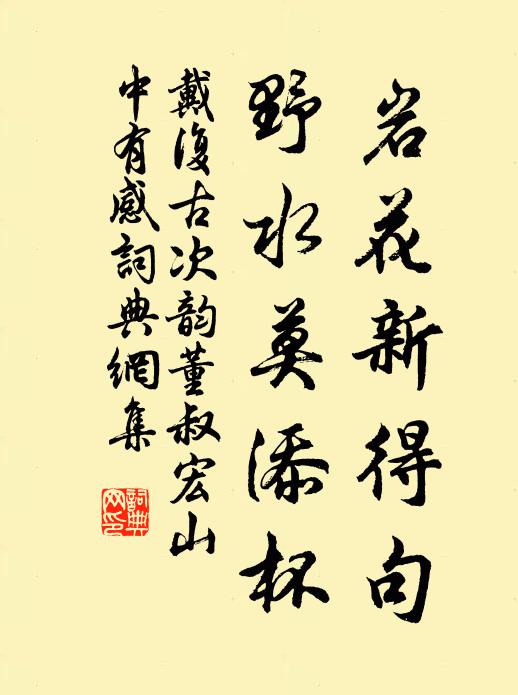 岩花新得句
野水莫添杯
戴復古次韵董叔宏山
中有感詞典網集
詞典网印